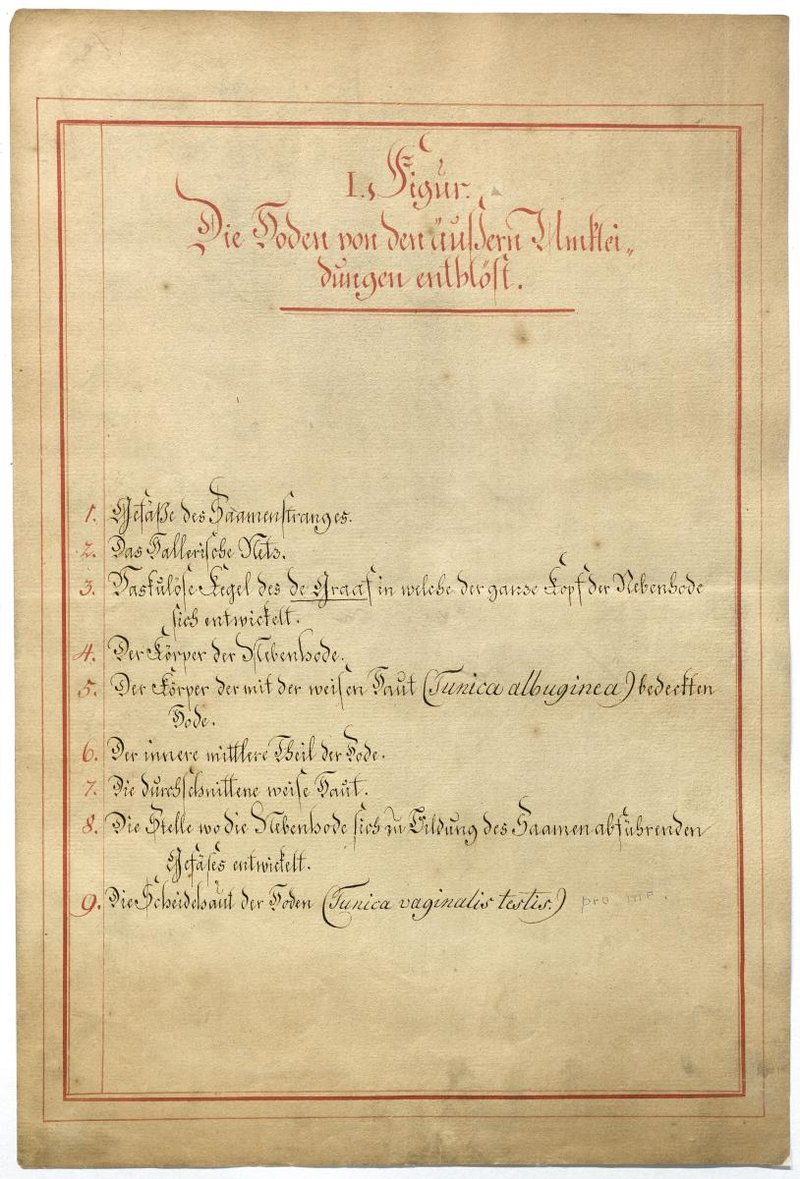 I., Figur.
Die Hoden von den äußern Umklei„
dungen entblöst.
1. Gefäße des Saamenstranges.
2. Das Hallerische Netz.
3. Vaskulöse Kegel des de Graaf in welche der ganze Kopf der Nebenhode
sich entwickelt.
4. Der Körper der Nebenhode.
5. Der Körper der mit der weisen Haut (Tunica albuginea) bedeckten
Hode.
6. Der innere mittlere Theil der Hode.
7. Die durchschnittene weise Haut.
8. Die Stelle wo die Nebenhode sich zu Bildung des Saamen abführenden
Gefäses entwickelt.
9. Die Scheidehaut der Hoden (Tunica vaginalis testis.)